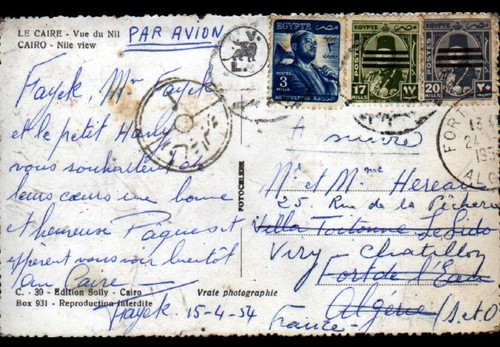 LE CAIRE - Vue du Nil
CAIRO - Nile view
PAR AVION
EGYPTE
POSTES
3
MILLS
EGYPTE
POSTES
17
MILLS
١٧
EGYPTE
POSTES
20
MILLS
٢٠
Fayek, Mme Fayek
et le petit Hany
vous souhaitent de
leurs cœurs une bonne
et heureuse Pâques et
espèrent vous voir bientôt
au Caire
Fayek 15-4-54
C. - 39 - Edition Solly - Cairo
Box 931 - Reproduction interdite
Vraie photographie
FOTOCELERE
A suivre
Mr et Mme Hereau
25, Rue de la Pêcherie
Villa Toitonne Le Lido
Viry Chatillon
Fort de l'Eau
Algérie (S. et O)
France
FOR
ALG